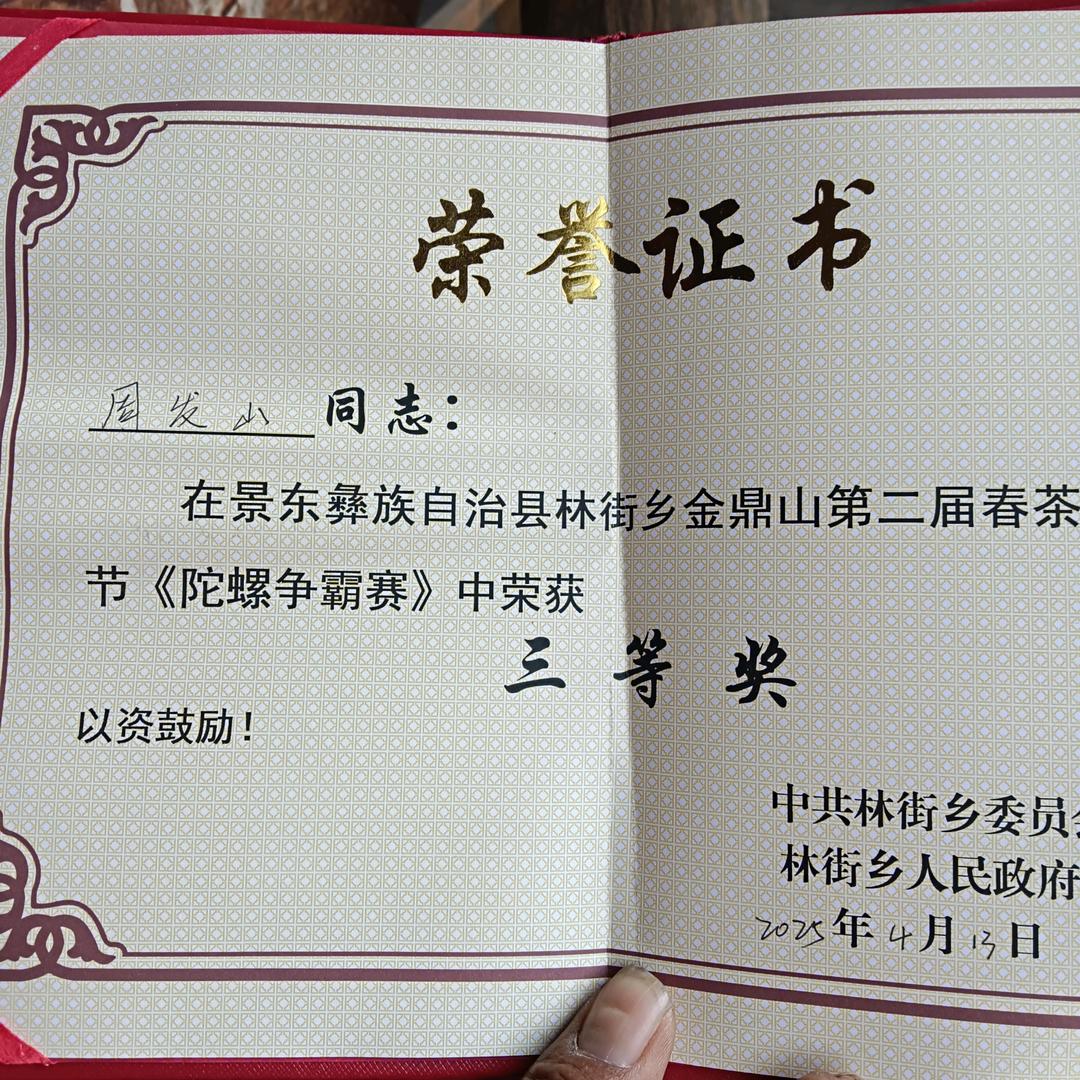 荣誉证书
周发山 同志：
在景东彝族自治县林街乡金鼎山第二届春茶
节《陀螺争霸赛》中荣获
三等奖
以资鼓励！
中共林街乡委员会
林街乡人民政府
2025年4月13日